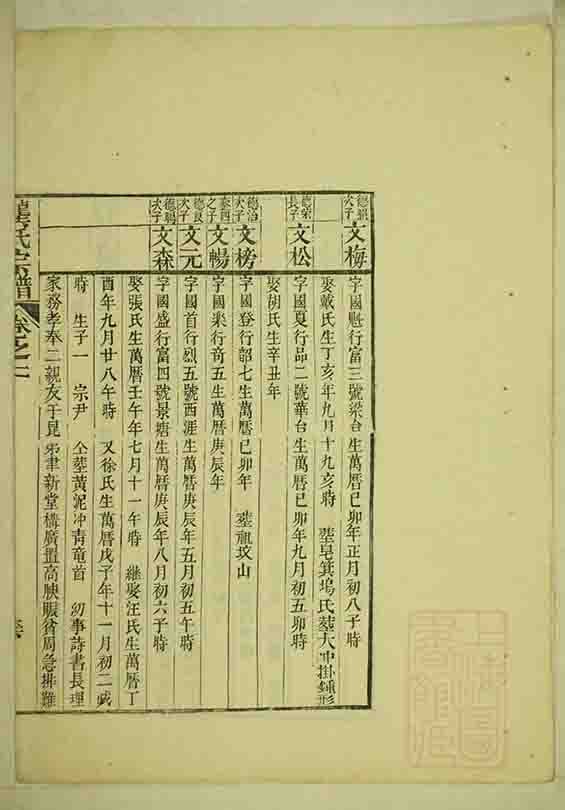 德
次子
文梅
字國魁行富三號梁台 生萬曆己卯年正月初八子時
娶戴氏生丁亥年九月十九亥時 塟皂箕塢氏塟大冲掛鍾形
德榮
長子
文松
字國夏行品二號華台 生萬曆己卯年九月初五卯時
娶胡氏生辛丑年
德治
次子
文榜
字國登行韶七生萬曆己卯年 塟祖坟山
泰四
之子
文暢
字國樂行奇五生萬曆庚辰年
德良
次子
文元
字國首行烈五號西涯生萬曆庚辰年五月初五午時
德聰
次子
文森
字國盛行富四號景塘生萬曆庚辰年八月初六子時
娶張氏生萬曆壬午年七月十一午時 継娶汪氏生萬曆丁
酉年九月廿八午時 又徐氏生萬曆戊子年十一月初二戌
時 生子一 宗尹 仝塟黃泥冲青竜首 幼事詩書長理
家務孝奉二親友于昆弟聿新堂構廣置高腴賑貧周急排難
氏宗譜 卷之二
上海圖書館藏